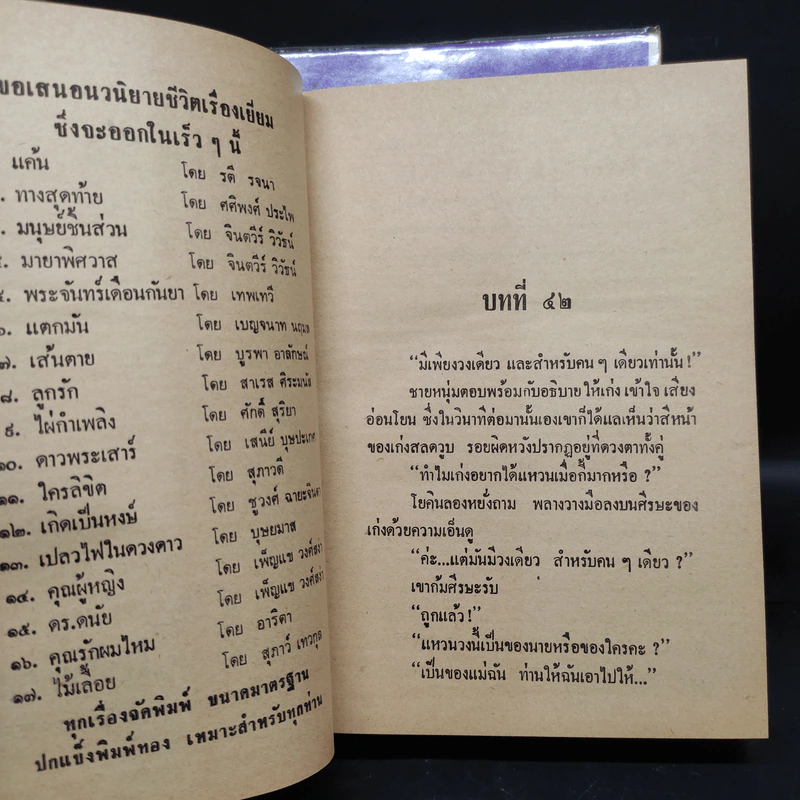 ขอเสนอนวนิยายชีวิตเรื่องเยี่ยม
ซึ่งจะออกในเร็ว ๆ นี้
แค้น โดย รตี รจนา
ทางสุดท้าย โดย ศศิพงศ์ ประไพ
มนุษย์ชิ้นส่วน โดย จินตวีร์ วิวัธน์
มายาพิศวาส โดย จินตวีร์ วิวัธน์
พระจันทร์เดือนกันยา โดย เทพเทวี
๖. แตกมัน โดย เบญจนาท นฤมล
๗. เส้นตาย โดย บูรพา อาลักษณ์
๘. ลูกรัก โดย สาเรส ศิระมนัส
๙. ไผ่กำเพลิง โดย ศักดิ์ สุริยา
๑๐. ดาวพระเสาร์ โดย เสนีย์ บุษปะเกศ
๑๑. ใครลิขิต โดย สุภาวดี
๑๒. เกิดเป็นหงษ์ โดย ชูวงศ์ ฉายะจินดา
๑๓. เปลวไฟในดวงดาว โดย บุษยมาส
๑๔. คุณผู้หญิง โดย เพ็ญแข วงศ์สง่า
๑๕. ดร.ดนัย โดย เพ็ญแข วงศ์สง่า
๑๖. คุณรักผมไหม โดย อาริตา
๑๗. ไม้เลื้อย โดย สุภาว์ เทวกุล
ทุกเรื่องจัดพิมพ์ ขนาดมาตรฐาน
ปกแข็งพิมพ์ทอง เหมาะสำหรับทุกท่าน
บทที่ ๔๒
“มีเพียงวงเดียว และสำหรับคน ๆ เดียวเท่านั้น !”
ชายหนุ่มตอบพร้อมกับอธิบาย ให้เก่ง เข้าใจ เสียง
อ่อนโยน ซึ่งในวินาทีต่อมานั้นเองเขาก็ได้แลเห็นว่าสีหน้า
ของเก่งสลดวูบ รอยผิดหวังปรากฏอยู่ที่ดวงตาทั้งคู่
“ทำไมเก่งอยากได้แหวนเมื่อกี้มากหรือ ?”
โยคินลองหยั่งถาม พลางวางมือลงบนศีรษะของ
เก่งด้วยความเอ็นดู
“ค่ะ...แต่มันมีวงเดียว สำหรับคน ๆ เดียว ?”
เขาก้มศีรษะรับ
“ถูกแล้ว !”
“แหวนวงนี้เป็นของนายหรือของใครคะ ?”
“เป็นของแม่ฉัน ท่านให้ฉันเอาไปให้...”